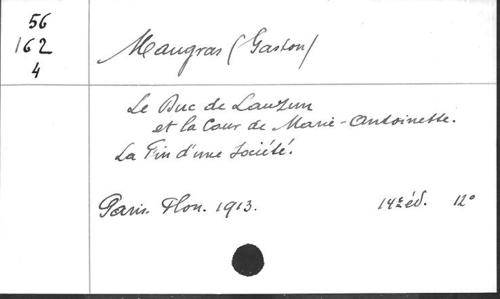 56
162
4
Maugras (Gaston)
Le Duc de Lauzun
et la Cour de Marie-Antoinette.
La Fin d'une Société.
Paris. Plon. 1913. 14e éd. 12°